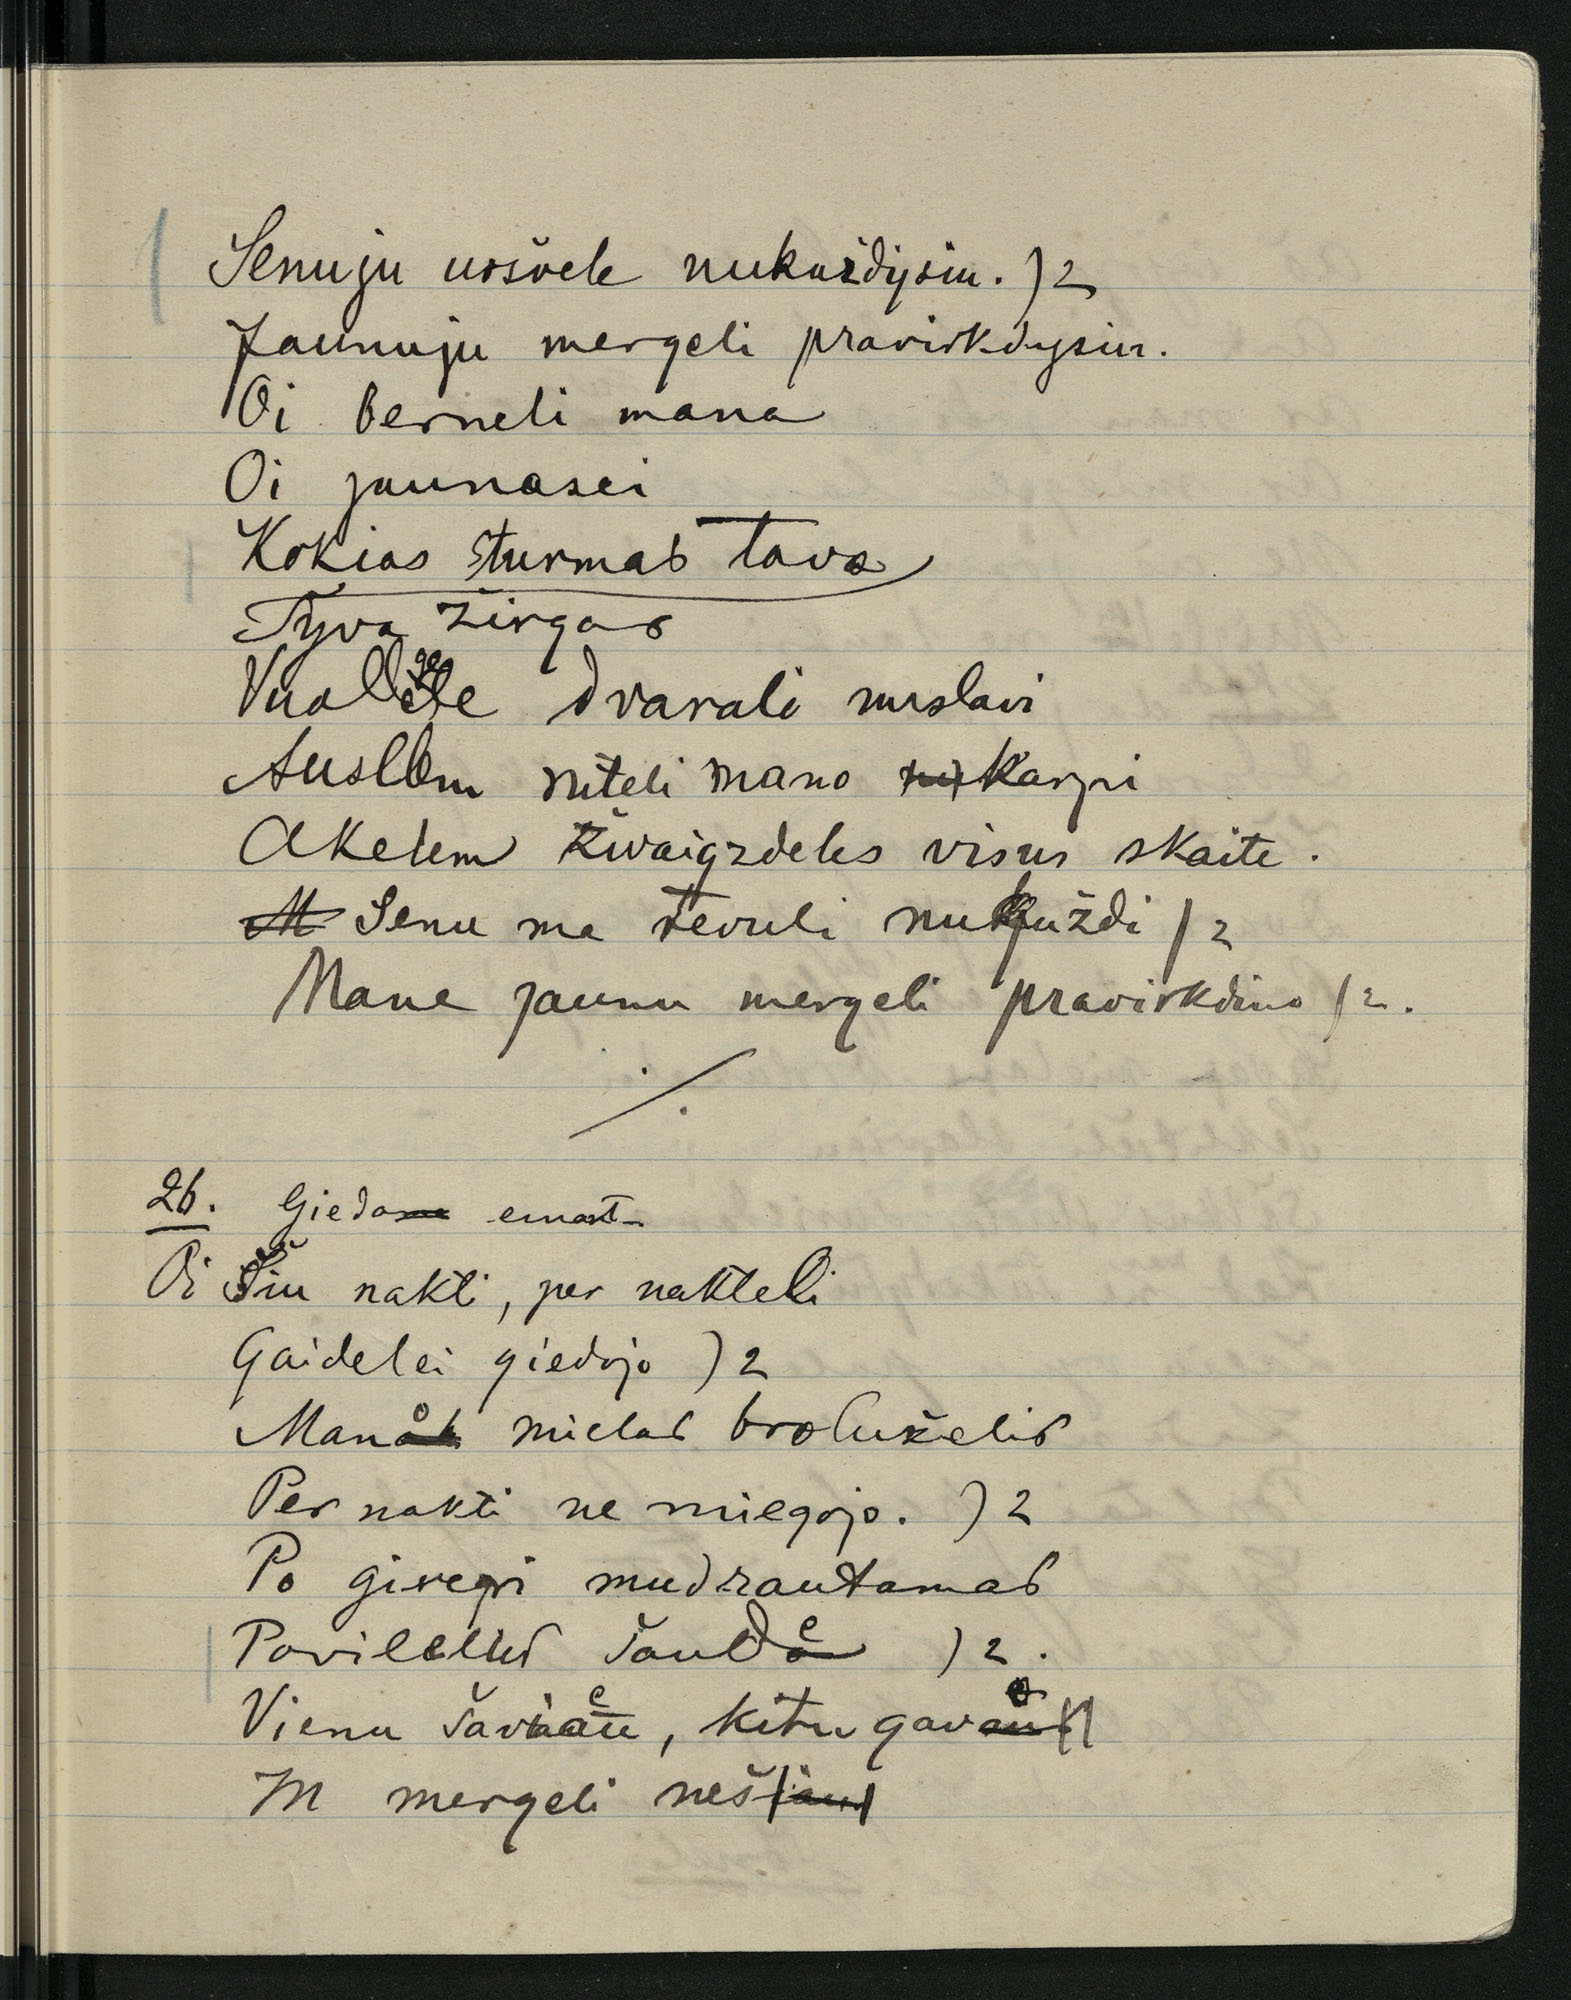 Senuju uošvele nukuždysiu. ) 2
Jaunuju mergeli pravirkdysiu.
Oi berneli mana
Oi jaunasei
Kokias sturmas tava
Tyva žirgas
dvarali nuslavi
ruteli mano nukarpi
Akelem žvaigzdeles visus skaite.
Senu ma tevuli nukuždi ) 2
Mane jaunu mergeli pravirkdino ) 2.
26. Gieda
Oi Šiu nakti, per nakteli
Gaidelei giedojo ) 2
Mano mielas broluželis
Per nakti ne miegojo. ) 2
Po giregi
Povilelius šaude ) 2.
Vienu šave, kitu gavo
M mergeli neš